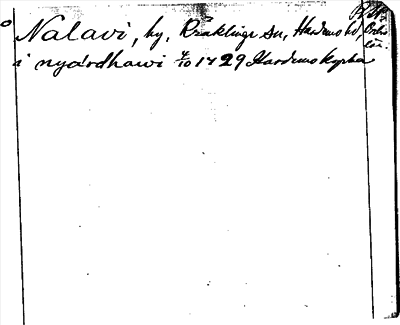 Nalavi, by, Kräklinge sn, Hardemo hd, Örebro län.
i nyärdhawi 4/10 1429 Hardemo kyrka